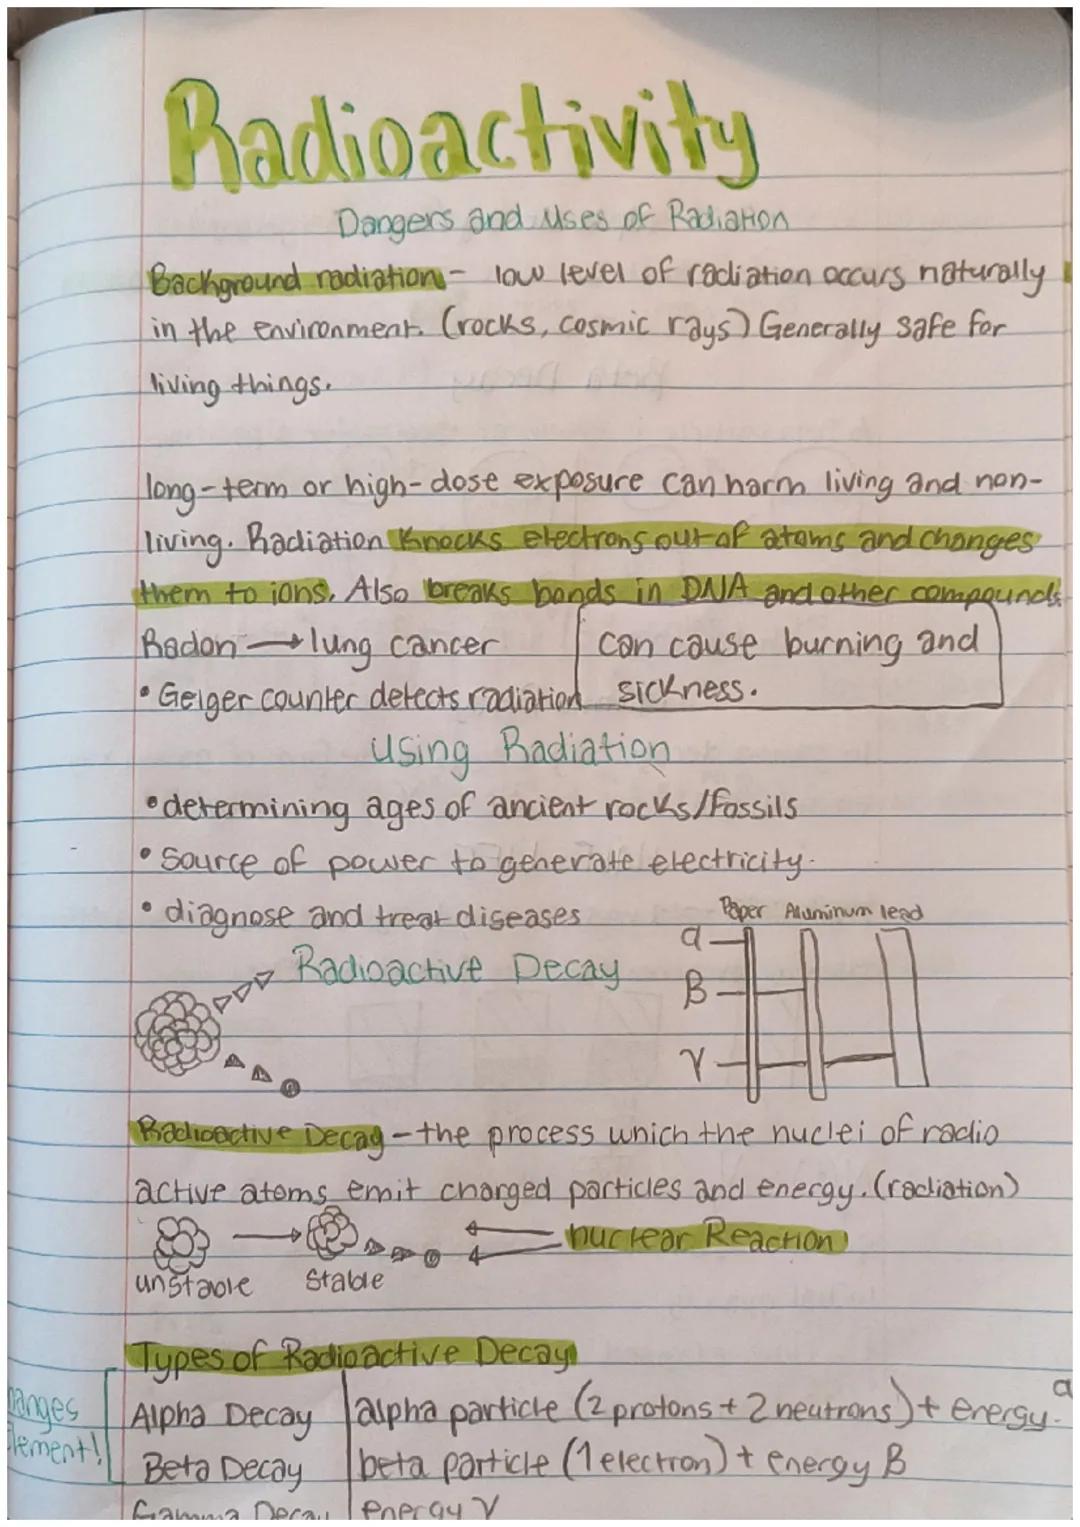 Radioactivity
Dangers and Uses of Radiation
Background radiation - low level of radiation occurs naturally
in the environment. (rocks, cosmic rays) Generally safe for
living things.
long-term or high-dose exposure can harm living and non-
living. Radiation knocks electrons out of atoms and changes
them to ions. Also breaks bonds in DNA and other compounds.
Radon → lung cancer
• Geiger counter detects radiation
can cause burning and
sickness.
Using Radiation
• determining ages of ancient rocks/fossils
• Source of power to generate electricity.
• diagnose and treat diseases
Paper Aluninum lead
α
β
γ
Radioactive Decay
Radioactive Decay - the process which the nuclei of radio
active atoms emit charged particles and energy. (radiation)
nuclear Reaction
unstable → Stable
Types of Radioactive Decay
hanges
lement!
Alpha Decay alpha particle (2 protons + 2 neutrons) + energy. α
Beta Decay beta particle (1 electron) + energy β
Gamma Decay energy γ